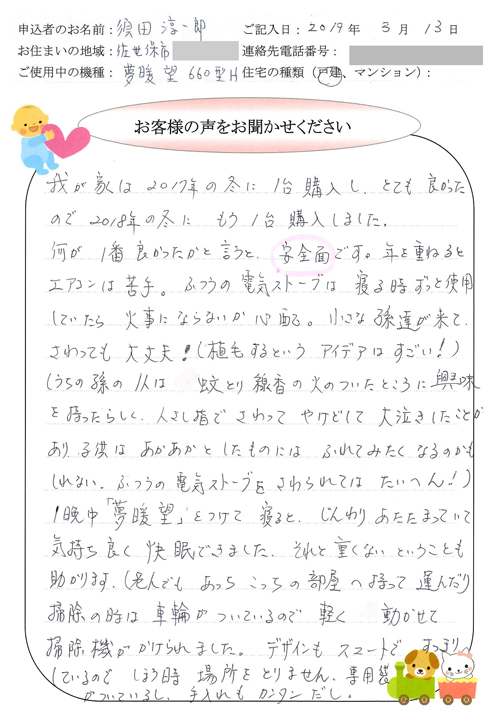 申込者のお名前：須田 淳一郎 ご記入日：2019年 3月 13日
お住まいの地域：佐世保市 連絡先電話番号：
ご使用中の機種：夢暖望 660型H 住宅の種類（戸建、マンション）：
お客様の声をお聞かせください
我が家は2017年の冬に1台購入し、とても良かった
ので2018年の冬にもう1台購入しました。
何が1番良かったかと言うと、安全面です。年を重ねると
エアコンは苦手。ふつうの電気ストーブは寝る時ずっと使用
していたら火事にならないか心配。小さな孫達が来て、
さわっても大丈夫！（植毛するというアイデアはすごい！）
（うちの孫の1人は蚊とり線香の火のついたところに興味
を持ったらしく、人さし指でさわってやけどして大泣きしたことが
あり子供はあかあかとしたものにはふれてみたくなるのかも
しれない。ふつうの電気ストーブをさわられてはたいへん！）
1晩中「夢暖望」をつけて寝ると、じんわりあたたまっていて
気持ち良く快眠できました。それと重くないということも
助かります。（老人でもあっちこっちの部屋へ持って運んだり
掃除の時は車輪がついているので軽く動かせて
掃除機がかけられました。デザインもスマートですっきり
しているのでしまう時場所をとりません。専用袋
がついているし、手入れもカンタンだし。